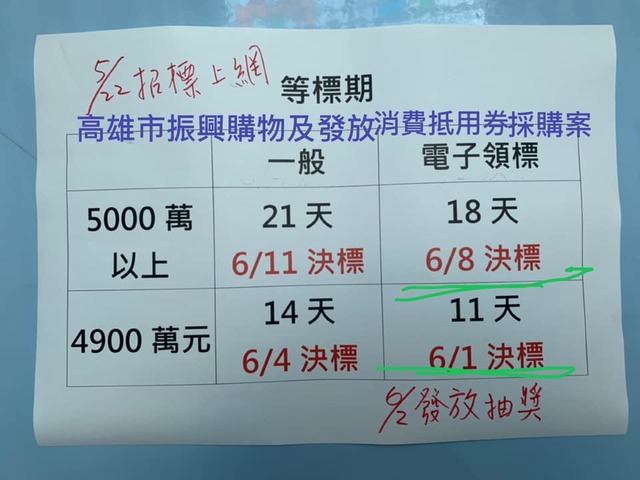 5/22 招標上網
等標期
高雄市振興購物及發放消費抵用券採購案
一般 電子領標
5000 萬以上 21 天 18 天
6/11 決標 6/8 決標
4900 萬元 14 天 11 天
6/4 決標 6/1 決標
6/2 發放抽獎